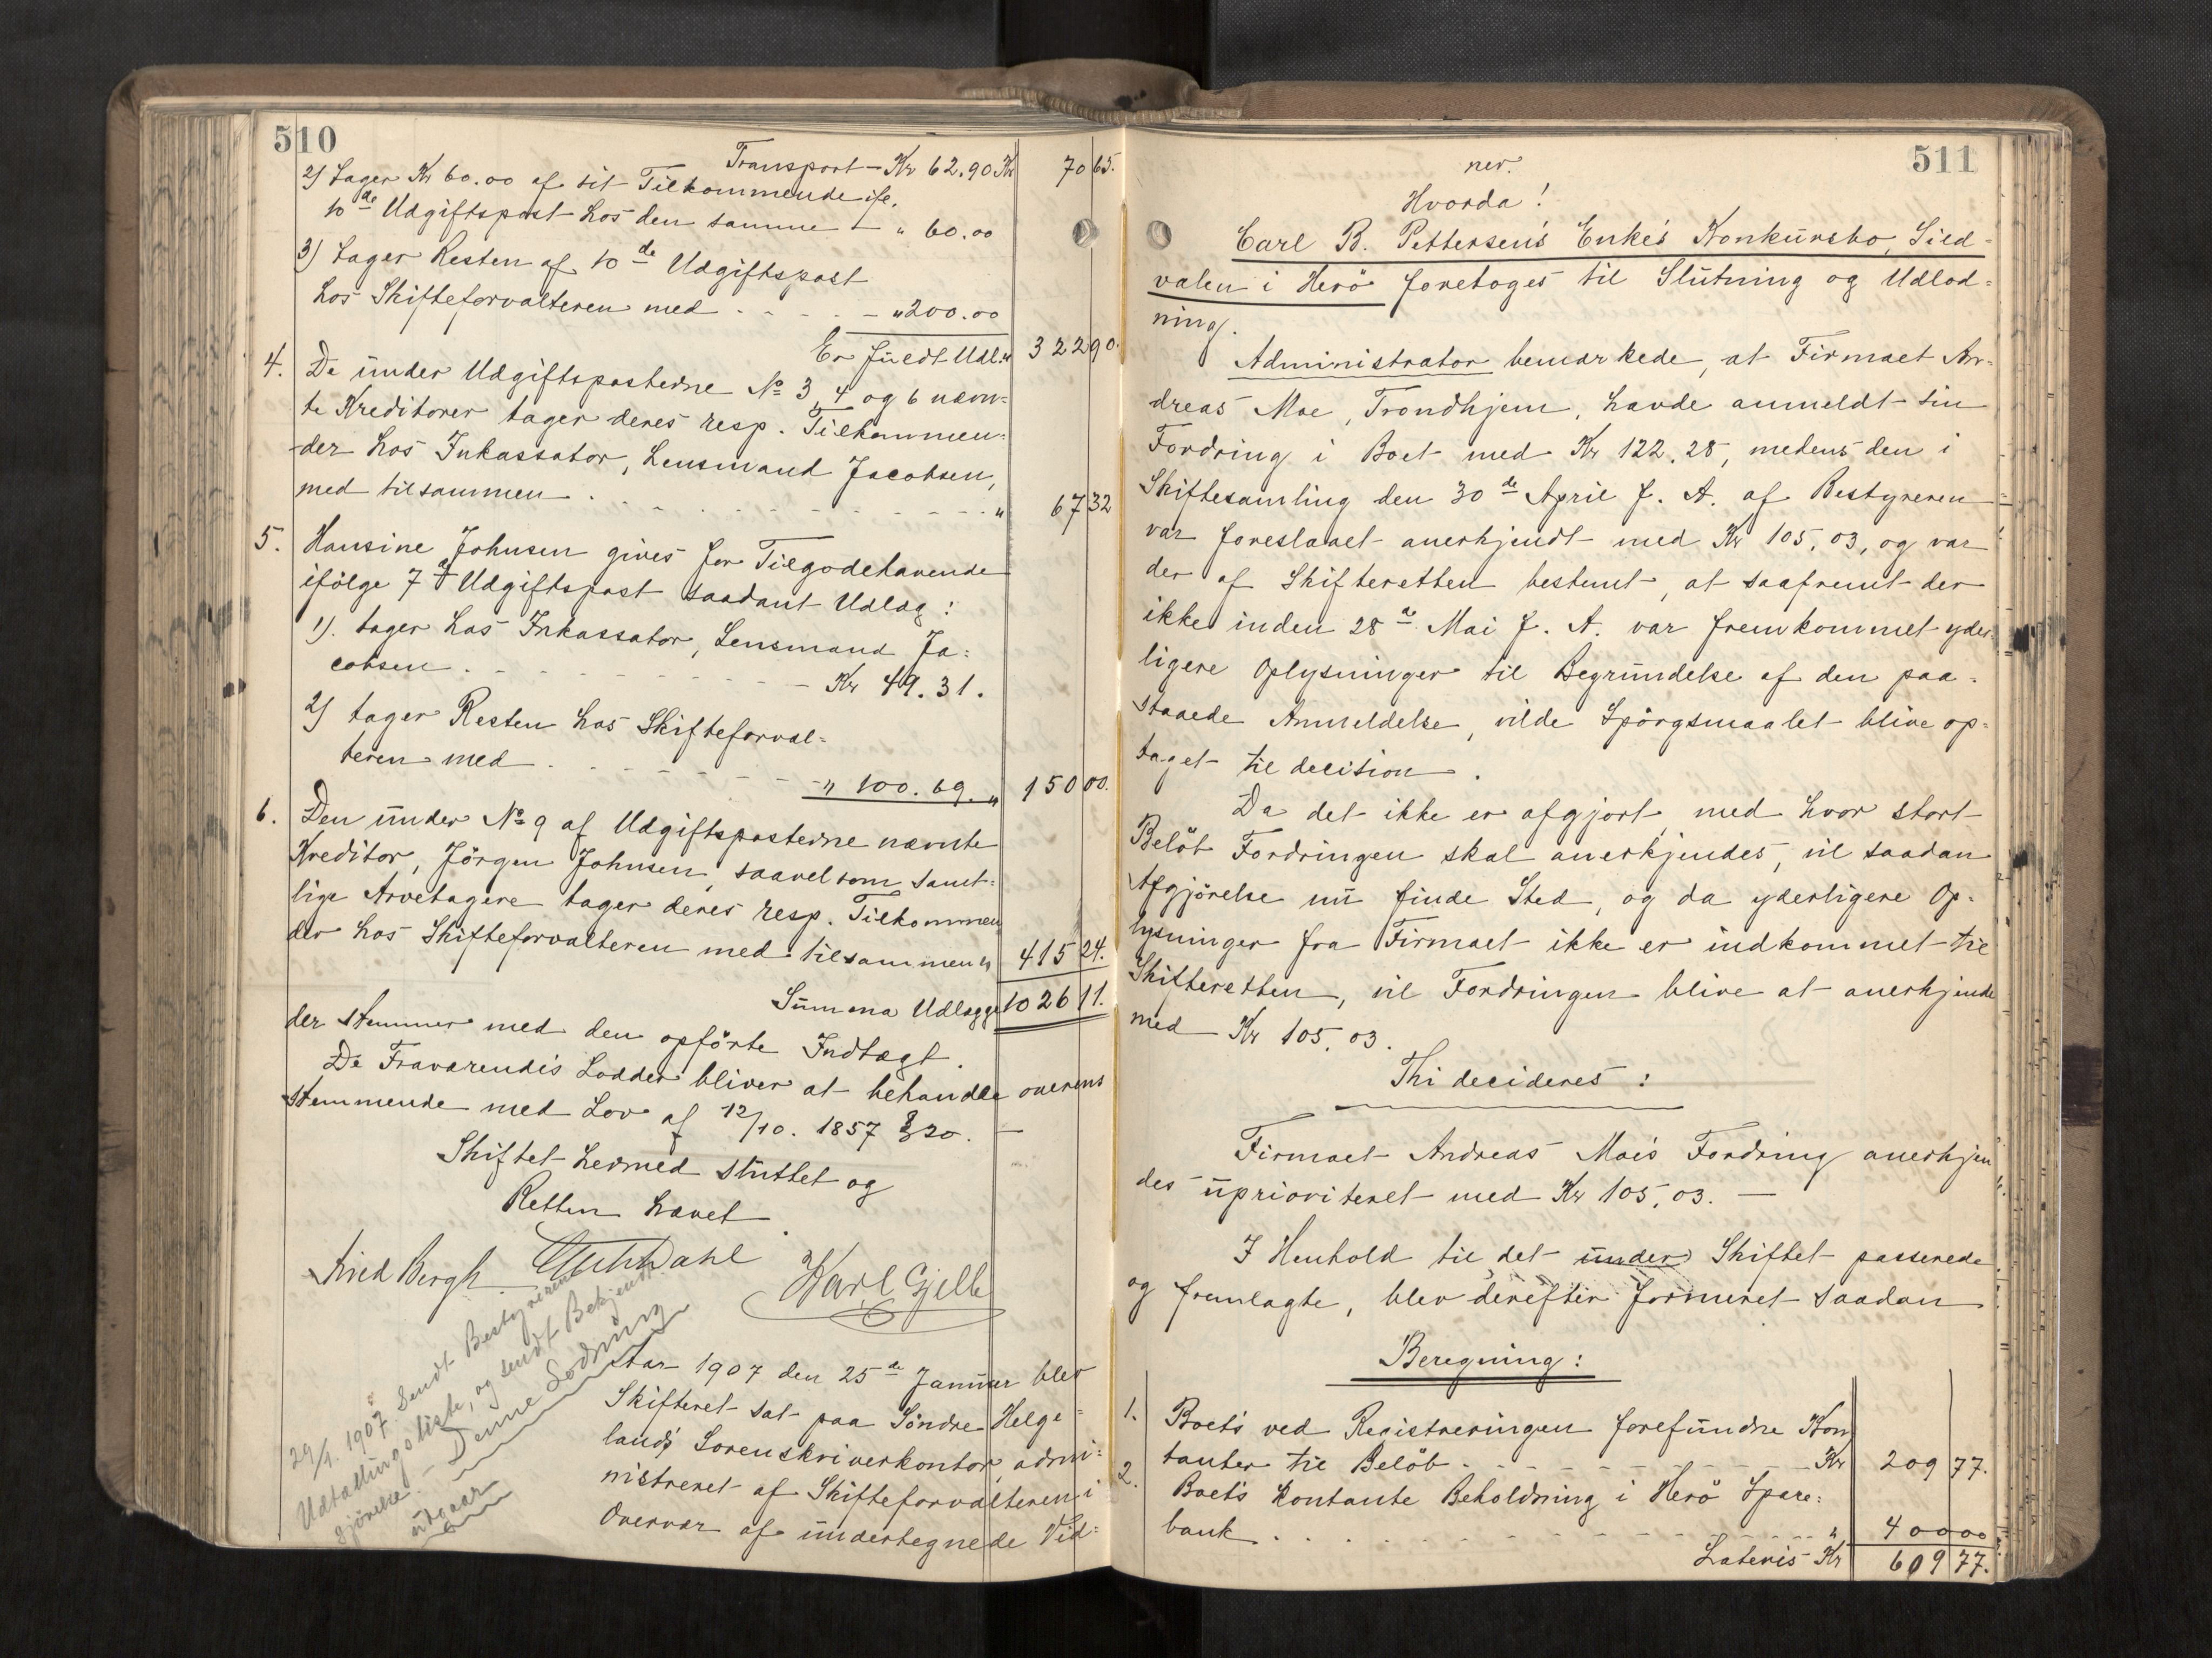 510
Transport - Kr 62.90 Kr 70 65.
2) Tager Kr 60.00 af sit Tilkommende ifl.
10de Udgiftspost hos den samme - " 60.00
3) Tager Resten af 10de Udgiftspost
hos Skifteforvalteren med - - - - - " 200.00
Er fuldt Udl. " 322 90.
4. De under Udgiftsposterne No 3, 4 og 6 nævn-
te Kreditorer tager deres resp. Tilkommen-
der hos Inkassator, Lensmand Jacobsen,
med tilsammen - - - - - - - - - " 67 32
5. Hansine Johnsen gives for Tilgodehavende
ifölge 7de Udgiftspost saadant Udlæg:
1). tager hos Inkassator, Lensmand Ja-
cobsen - - - - - - - - - Kr 49.31.
2) tager Resten hos Skifteforval-
teren med - - - - - - - - " 100.69. " 150 00.
6. Den under No 9 af Udgiftsposterne nævnte
Kreditor, Jörgen Johnsen, saavelsom samt-
lige Arvetagere tager deres resp. Tilkommen
der hos Skifteforvalteren med tilsammen " 415 24.
Summa Udlægget 1026 11.
der stemmer med den opförte Indtægt.
De Fraværendes Lodder bliver at behandle overens
stemmende med Lov af 12/10. 1857 § 20. —
Skiftet hermed sluttet og
Retten hævet.
Arvid Bergh. Dahl Karl Gjelle
29/1. 1907. Sendt Bestyreren
Udtallingsliste, og sendt Bekjendt-
gjörelse. - Denne Lodning
udgaar
Aar 1907 den 25de Januar blev
Skifteret sat paa Söndre Helge-
lands Sorenskriverkontor, admi-
nistreret af Skifteforvalteren i
Overvær af undertegnede Vid-
511
ner.
Hvorda!
Carl B. Pettersen's Enke's Konkursbo, Sild-
valen i Herö foretoges til Slutning og Udlod-
ning.
Administrator bemærkede, at Firmaet An-
dreas Moe, Trondhjem, havde anmeldt sin
Fordring i Boet med Kr 122.28, medens den i
Skiftesamling den 30de April f. A. af Bestyreren
var foreslaaet anerkjendt med Kr 105.03, og var
der af Skifteretten bestemt, at saafremt der
ikke inden 28de Mai f. A. var fremkommet yder-
ligere Oplysninger til Begrundelse af den paa-
staaede Anmeldelse, vilde Spörgsmaalet blive op-
taget til decision.
Da det ikke er afgjort, med hvor stort
Belöb Fordringen skal anerkjendes, vil saadan
Afgjörelse nu finde Sted, og da yderligere Op-
lysninger fra Firmaet ikke er indkommet til
Skifteretten, vil Fordringen blive at anerkjende
med Kr 105.03.
Thi decideres:
Firmaet Andreas Moe's Fordring anerkjen
des uprioriteret med Kr 105.03. —
I Henhold til det under Skiftet passerede
og fremlagte, blev derefter formeret saadan
Beregning:
1. Boets ved Registreringen forefundne Kon
tanter til Belöb - - - - - - - - Kr 209 77.
2. Boets kontante Beholdning i Herö Spare-
bank - - - - - - - - - - - " 400 00
Lateris Kr 609 77.